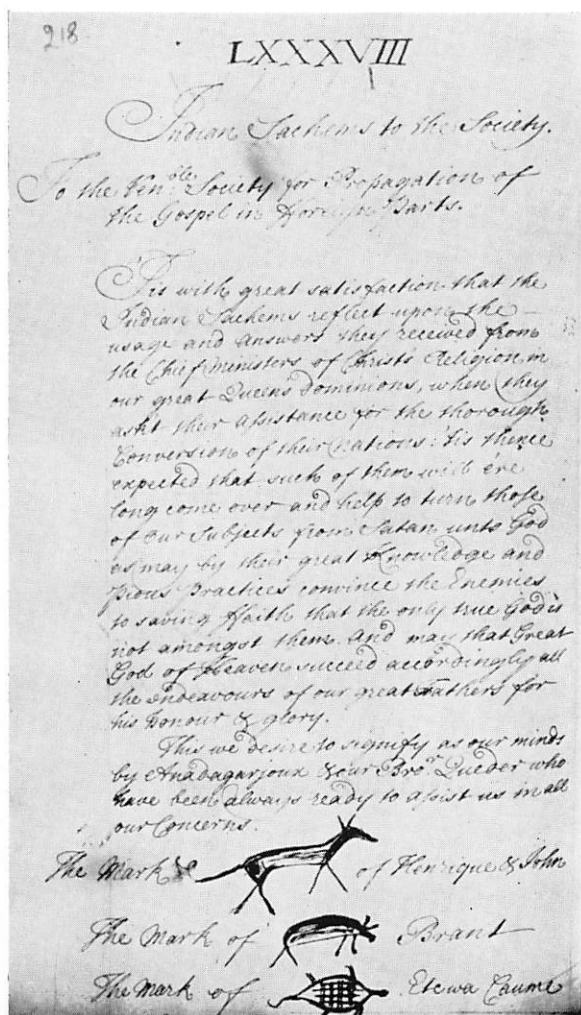 218
LXXXVIII
Indian Sachems to the Society.
To the Venble. Society for Propagation of
the Gospel in Foreign Parts.
Tis with great satisfaction that the
Indian Sachems reflect upon the
usage and answers they received from
the Chief Ministers of Christs Religion in
our great Queens Dominions, when they
askt their Assistance for the thorough
Conversion of their Nations: 'tis thence
expected that such of them will e're
long come over and help to turn those
of our Subjects from Satan unto God
as may by their great Knowledge and
Pious Practices convince the Enemies
to saving ffaith that the only true God is
not amongst them. And may that Great
God of Heaven succeed accordingly all
the endeavours of our great Fathers for
his honour & glory.
This we desire to signify as our minds
by Anadagarjoux & our Bror. Queder who
have been always ready to assist us in all
our Concerns.
The Mark of Henrique & John
The Mark of Brant
The Mark of Etewa Caume